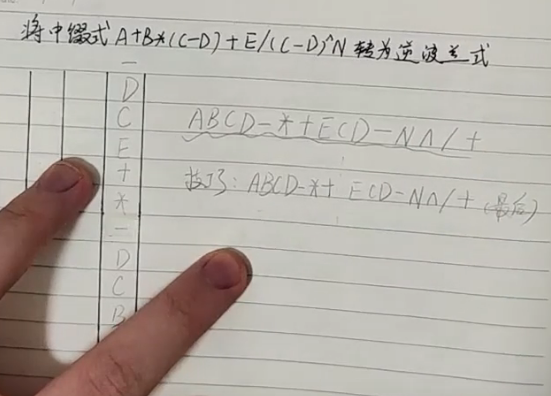 将中缀式 A+B*(C-D)+E/(C-D)^N 转为逆波兰式
-
D
C
E
+
*
-
D
C
B
ABCD-*+ECD-N∧/+
技巧: ABCD-*+ ECD-N∧/+ (最后)